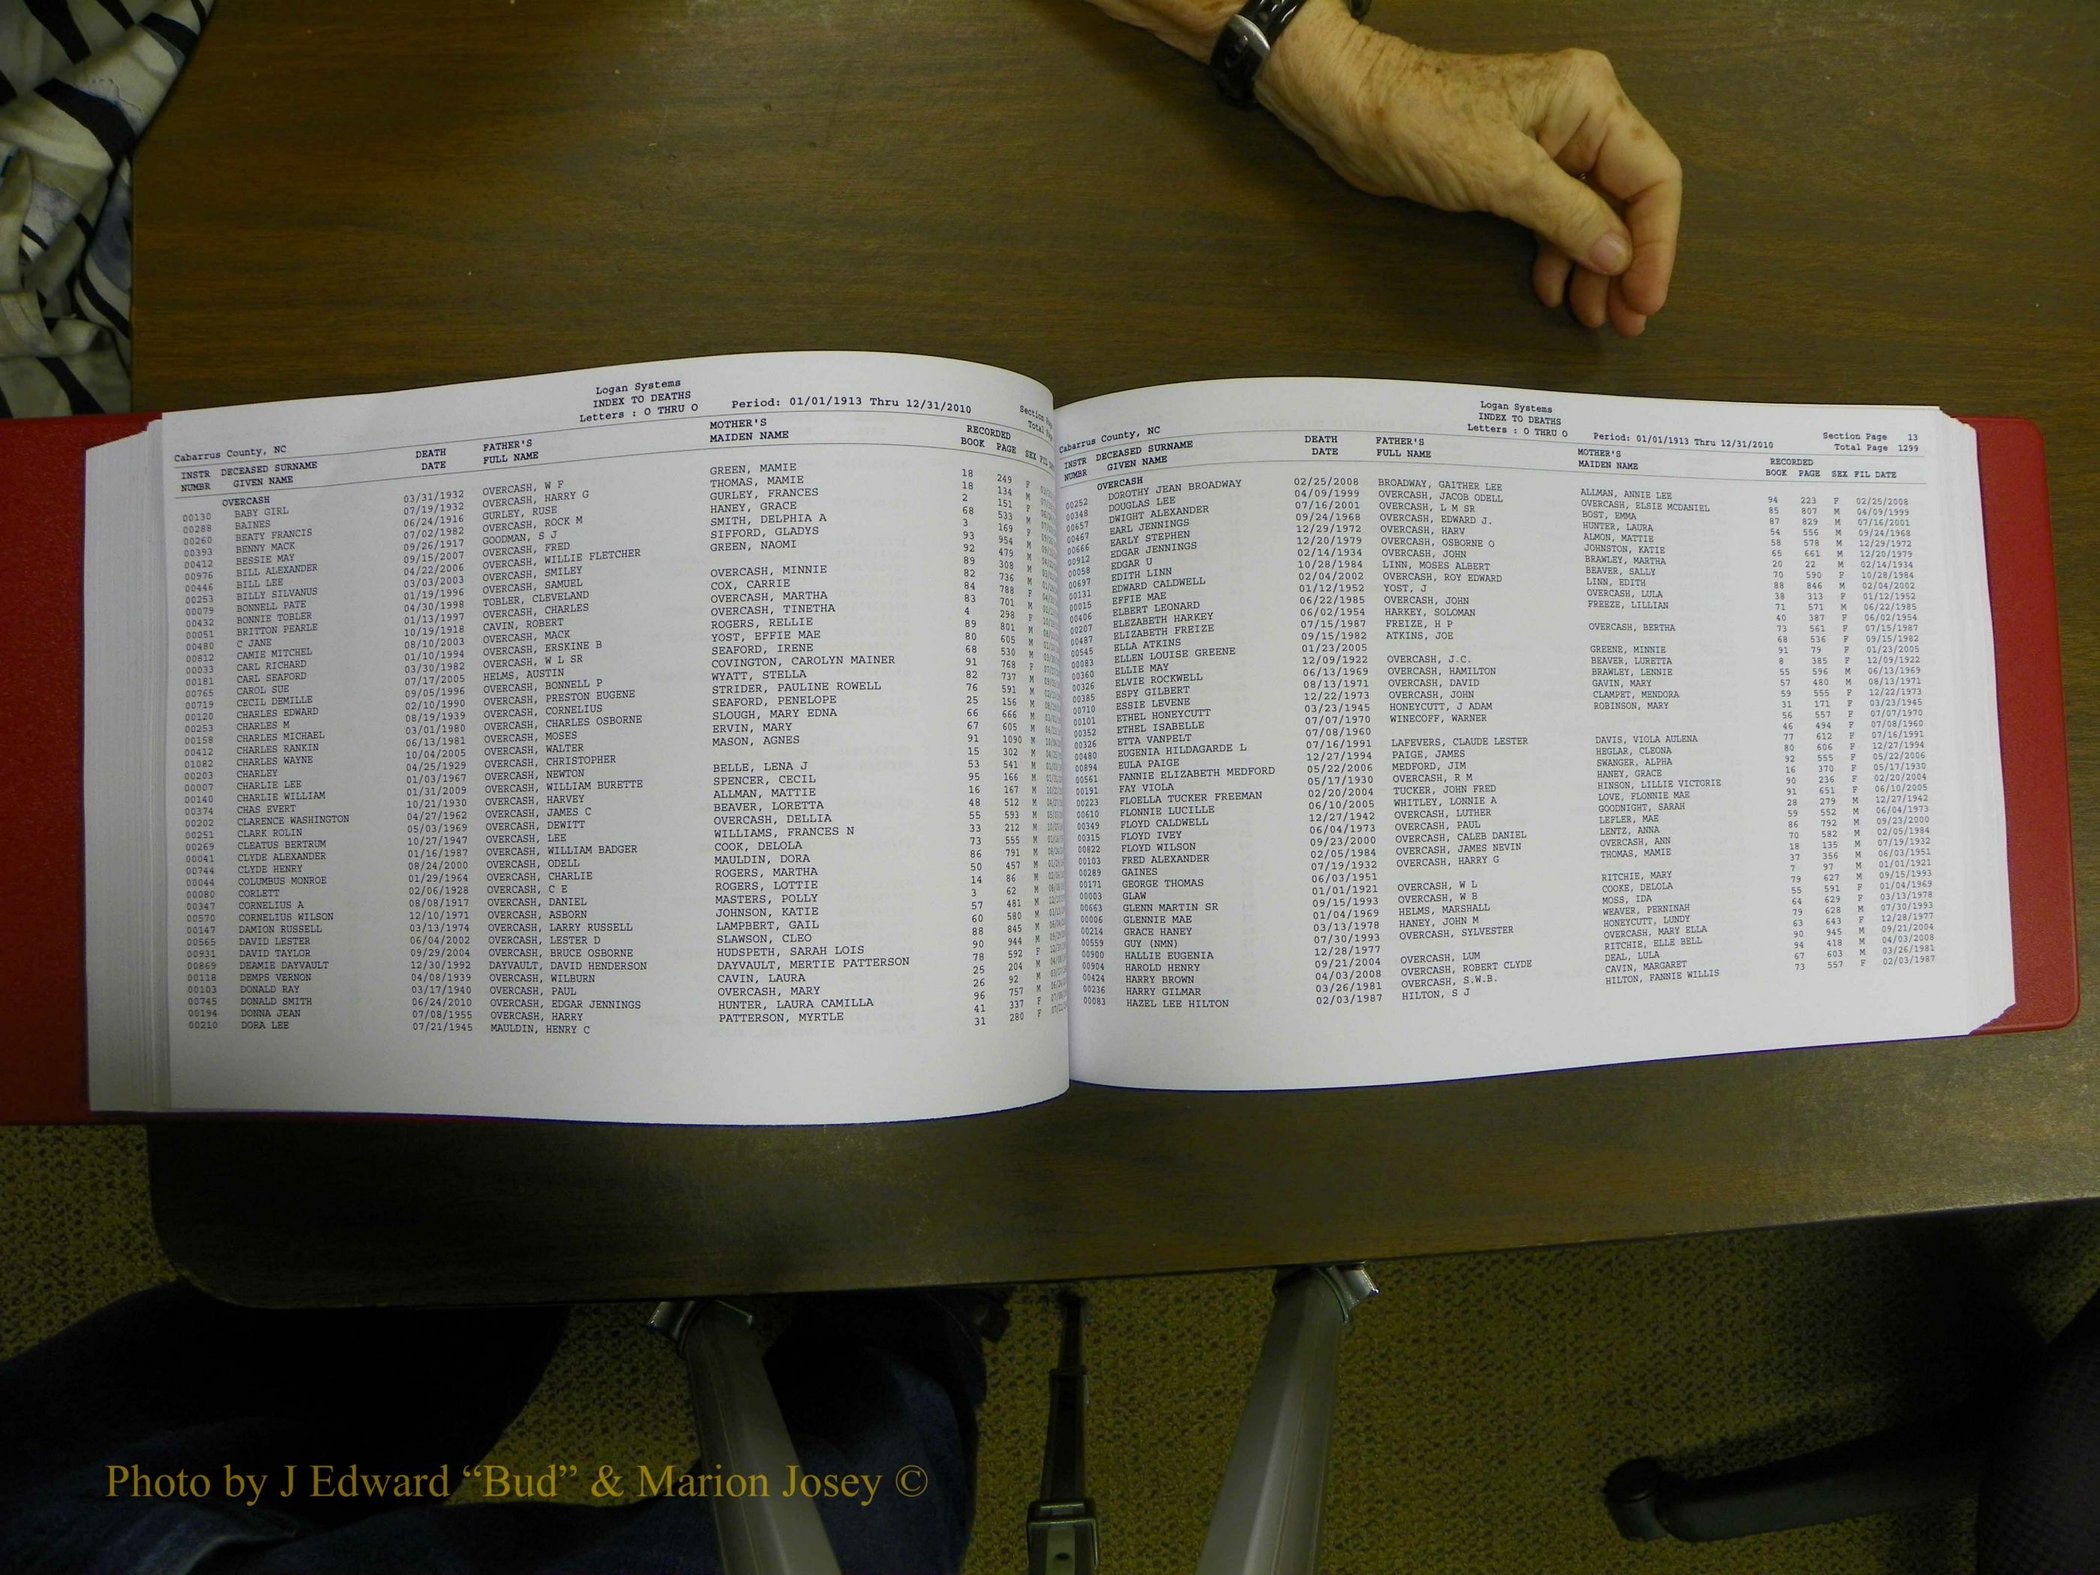 Logan Systems
INDEX TO DEATHS
Letters : O THRU O Period: 01/01/1913 Thru 12/31/2010
Section
Total
Cabarrus County, NC
INSTR DECEASED SURNAME DEATH FATHER'S MOTHER'S RECORDED
NUMBR GIVEN NAME DATE FULL NAME MAIDEN NAME BOOK PAGE SEX FIL
OVERCASH
00130 BABY GIRL 03/31/1932 OVERCASH, W F GREEN, MAMIE 18 249 F
00288 BAINES 07/19/1932 OVERCASH, HARRY G THOMAS, MAMIE 18 134 M
00260 BEATY FRANCIS 06/24/1916 GURLEY, RUSE GURLEY, FRANCES 2 151 F
00393 BENNY MACK 07/02/1982 OVERCASH, ROCK M HANEY, GRACE 68 533 M
00412 BESSIE MAY 09/26/1917 GOODMAN, S J SMITH, DELPHIA A 3 169 F
00976 BILL ALEXANDER 09/15/2007 OVERCASH, FRED SIFFORD, GLADYS 93 954 M
00446 BILL LEE 04/22/2006 OVERCASH, WILLIE FLETCHER GREEN, NAOMI 92 479 M
00253 BILLY SILVANUS 03/03/2003 OVERCASH, SMILEY 89 308 M
00079 BONNELL PATE 01/19/1996 OVERCASH, SAMUEL OVERCASH, MINNIE 82 736 M
00432 BONNIE TOBLER 04/30/1998 TOBLER, CLEVELAND COX, CARRIE 84 788 F
00051 BRITTON PEARLE 01/13/1997 OVERCASH, CHARLES OVERCASH, MARTHA 83 701 M
00480 C JANE 10/19/1918 CAVIN, ROBERT OVERCASH, TINETHA 4 298 F
00812 CAMIE MITCHEL 08/10/2003 OVERCASH, MACK ROGERS, RELLIE 89 801 M
00033 CARL RICHARD 01/10/1994 OVERCASH, ERSKINE B YOST, EFFIE MAE 80 605 M
00181 CARL SEAFORD 03/30/1982 OVERCASH, W L SR SEAFORD, IRENE 68 530 M
00765 CAROL SUE 07/17/2005 HELMS, AUSTIN COVINGTON, CAROLYN MAINER 91 768 F
00719 CECIL DEMILLE 09/05/1996 OVERCASH, BONNELL P WYATT, STELLA 82 737 M
00120 CHARLES EDWARD 02/10/1990 OVERCASH, PRESTON EUGENE STRIDER, PAULINE ROWELL 76 591 M
00253 CHARLES M 08/19/1939 OVERCASH, CORNELIUS SEAFORD, PENELOPE 25 156 M
00158 CHARLES MICHAEL 03/01/1980 OVERCASH, CHARLES OSBORNE SLOUGH, MARY EDNA 66 666 M
00412 CHARLES RANKIN 06/13/1981 OVERCASH, MOSES ERVIN, MARY 67 605 M
01082 CHARLES WAYNE 10/04/2005 OVERCASH, WALTER MASON, AGNES 91 1090 M
00203 CHARLEY 04/25/1929 OVERCASH, CHRISTOPHER 15 302 M
00007 CHARLIE LEE 01/03/1967 OVERCASH, NEWTON BELLE, LENA J 53 541 M
00140 CHARLIE WILLIAM 01/31/2009 OVERCASH, WILLIAM BURETTE SPENCER, CECIL 95 166 M
00374 CHAS EVERT 10/21/1930 OVERCASH, HARVEY ALLMAN, MATTIE 16 167 M
00202 CLARENCE WASHINGTON 04/27/1962 OVERCASH, JAMES C BEAVER, LORETTA 48 512 M
00251 CLARK ROLIN 05/03/1969 OVERCASH, DEWITT OVERCASH, DELLIA 55 593 M
00269 CLEATUS BERTRUM 10/27/1947 OVERCASH, LEE WILLIAMS, FRANCES N 33 212 M
00041 CLYDE ALEXANDER 01/16/1987 OVERCASH, WILLIAM BADGER COOK, DELOLA 73 555 M
00744 CLYDE HENRY 08/24/2000 OVERCASH, ODELL MAULDIN, DORA 86 791 M
00044 COLUMBUS MONROE 01/29/1964 OVERCASH, CHARLIE ROGERS, MARTHA 50 457 M
00080 CORLETT 02/06/1928 OVERCASH, C E ROGERS, LOTTIE 14 86 M
00347 CORNELIUS A 08/08/1917 OVERCASH, DANIEL MASTERS, POLLY 3 62 M
00570 CORNELIUS WILSON 12/10/1971 OVERCASH, ASBORN JOHNSON, KATIE 57 481 M
00147 DAMION RUSSELL 03/13/1974 OVERCASH, LARRY RUSSELL LAMPBERT, GAIL 60 580 M
00565 DAVID LESTER 06/04/2002 OVERCASH, LESTER D SLAWSON, CLEO 88 845 M
00931 DAVID TAYLOR 09/29/2004 OVERCASH, BRUCE OSBORNE HUDSPETH, SARAH LOIS 90 944 M
00869 DEAMIE DAYVAULT 12/30/1992 DAYVAULT, DAVID HENDERSON DAYVAULT, MERTIE PATTERSON 78 592 F
00118 DEMPS VERNON 04/08/1939 OVERCASH, WILBURN CAVIN, LAURA 25 204 M
00103 DONALD RAY 03/17/1940 OVERCASH, PAUL OVERCASH, MARY 26 92 M
00745 DONALD SMITH 06/24/2010 OVERCASH, EDGAR JENNINGS HUNTER, LAURA CAMILLA 96 757 M
00194 DONNA JEAN 07/08/1955 OVERCASH, HARRY PATTERSON, MYRTLE 41 337 F
00210 DORA LEE 07/21/1945 MAULDIN, HENRY C 31 280 F
Logan Systems
INDEX TO DEATHS
Letters : O THRU O Period: 01/01/1913 Thru 12/31/2010
Section Page 13
Total Page 1299
Cabarrus County, NC
INSTR DECEASED SURNAME DEATH FATHER'S MOTHER'S RECORDED
NUMBR GIVEN NAME DATE FULL NAME MAIDEN NAME BOOK PAGE SEX FIL DATE
OVERCASH
00252 DOROTHY JEAN BROADWAY 02/25/2008 BROADWAY, GAITHER LEE ALLMAN, ANNIE LEE 94 223 F 02/25/2008
00348 DOUGLAS LEE 04/09/1999 OVERCASH, JACOB ODELL OVERCASH, ELSIE MCDANIEL 85 807 M 04/09/1999
00657 DWIGHT ALEXANDER 07/16/2001 OVERCASH, L M SR BOST, EMMA 87 829 M 07/16/2001
00467 EARL JENNINGS 09/24/1968 OVERCASH, EDWARD J. HUNTER, LAURA 54 556 M 09/24/1968
00666 EARLY STEPHEN 12/29/1972 OVERCASH, HARV ALMON, MATTIE 58 578 M 12/29/1972
00912 EDGAR JENNINGS 12/20/1979 OVERCASH, OSBORNE O JOHNSTON, KATIE 65 661 M 12/20/1979
00058 EDGAR U 02/14/1934 OVERCASH, JOHN BRAWLEY, MARTHA 20 22 M 02/14/1934
00697 EDITH LINN 10/28/1984 LINN, MOSES ALBERT BEAVER, SALLY 70 590 F 10/28/1984
00131 EDWARD CALDWELL 02/04/2002 OVERCASH, ROY EDWARD LINN, EDITH 88 846 M 02/04/2002
00015 EFFIE MAE 01/12/1952 YOST, J OVERCASH, LULA 38 313 F 01/12/1952
00406 ELBERT LEONARD 06/22/1985 OVERCASH, JOHN FREEZE, LILLIAN 71 571 M 06/22/1985
00207 ELEZABETH HARKEY 06/02/1954 HARKEY, SOLOMAN 40 387 F 06/02/1954
00487 ELIZABETH FREIZE 07/15/1987 FREIZE, H P OVERCASH, BERTHA 73 561 F 07/15/1987
00545 ELLA ATKINS 09/15/1982 ATKINS, JOE 68 536 F 09/15/1982
00083 ELLEN LOUISE GREENE 01/23/2005 GREENE, MINNIE 91 79 F 01/23/2005
00360 ELLIE MAY 12/09/1922 OVERCASH, J.C. BEAVER, LURETTA 8 385 F 12/09/1922
00326 ELVIE ROCKWELL 06/13/1969 OVERCASH, HAMILTON BRAWLEY, LENNIE 55 596 M 06/13/1969
00385 ESPY GILBERT 08/13/1971 OVERCASH, DAVID GAVIN, MARY 57 480 M 08/13/1971
00710 ESSIE LEVENE 12/22/1973 OVERCASH, JOHN CLAMPET, MENDORA 59 555 F 12/22/1973
00101 ETHEL HONEYCUTT 03/23/1945 HONEYCUTT, J ADAM ROBINSON, MARY 31 171 F 03/23/1945
00352 ETHEL ISABELLE 07/07/1970 WINECOFF, WARNER 56 557 F 07/07/1970
00326 ETTA VANPELT 07/08/1960 46 494 F 07/08/1960
00480 EUGENIA HILDAGARDE L 07/16/1991 LAFEVERS, CLAUDE LESTER DAVIS, VIOLA AULENA 77 612 F 07/16/1991
00894 EULA PAIGE 12/27/1994 PAIGE, JAMES HEGLAR, CLEONA 80 606 F 12/27/1994
00561 FANNIE ELIZABETH MEDFORD 05/22/2006 MEDFORD, JIM SWANGER, ALPHA 92 555 F 05/22/2006
00191 FAY VIOLA 05/17/1930 OVERCASH, R M HANEY, GRACE 16 370 F 05/17/1930
00223 FLOELLA TUCKER FREEMAN 02/20/2004 TUCKER, JOHN FRED HINSON, LILLIE VICTORIE 90 236 F 02/20/2004
00610 FLONNIE LUCILLE 06/10/2005 WHITLEY, LONNIE A LOVE, FLONNIE MAE 91 651 F 06/10/2005
00349 FLOYD CALDWELL 12/27/1942 OVERCASH, LUTHER GOODNIGHT, SARAH 28 279 M 12/27/1942
00315 FLOYD IVEY 06/04/1973 OVERCASH, PAUL LEFLER, MAE 59 552 M 06/04/1973
00822 FLOYD WILSON 09/23/2000 OVERCASH, CALEB DANIEL LENTZ, ANNA 86 792 M 09/23/2000
00103 FRED ALEXANDER 02/05/1984 OVERCASH, JAMES NEVIN OVERCASH, ANN 70 582 M 02/05/1984
00289 GAINES 07/19/1932 OVERCASH, HARRY G THOMAS, MAMIE 18 135 M 07/19/1932
00171 GEORGE THOMAS 06/03/1951 37 356 M 06/03/1951
00003 GLAW 01/01/1921 OVERCASH, W L RITCHIE, MARY 7 97 M 01/01/1921
00663 GLENN MARTIN SR 09/15/1993 OVERCASH, W B COOKE, DELOLA 79 627 M 09/15/1993
00006 GLENNIE MAE 01/04/1969 HELMS, MARSHALL MOSS, IDA 55 591 F 01/04/1969
00214 GRACE HANEY 03/13/1978 HANEY, JOHN M WEAVER, PERNINAH 64 629 F 03/13/1978
00559 GUY (NMN) 07/30/1993 OVERCASH, SYLVESTER HONEYCUTT, LUNDY 79 628 M 07/30/1993
00900 HALLIE EUGENIA 12/28/1977 OVERCASH, MARY ELLA 63 643 F 12/28/1977
00904 HAROLD HENRY 09/21/2004 OVERCASH, LUM RITCHIE, ELLE BELL 90 945 M 09/21/2004
00424 HARRY BROWN 04/03/2008 OVERCASH, ROBERT CLYDE DEAL, LULA 94 418 M 04/03/2008
00236 HARRY GILMAR 03/26/1981 OVERCASH, S.W.B. CAVIN, MARGARET 67 603 M 03/26/1981
00083 HAZEL LEE HILTON 02/03/1987 HILTON, S J HILTON, FANNIE WILLIS 73 557 F 02/03/1987
Photo by J Edward “Bud” & Marion Josey ©